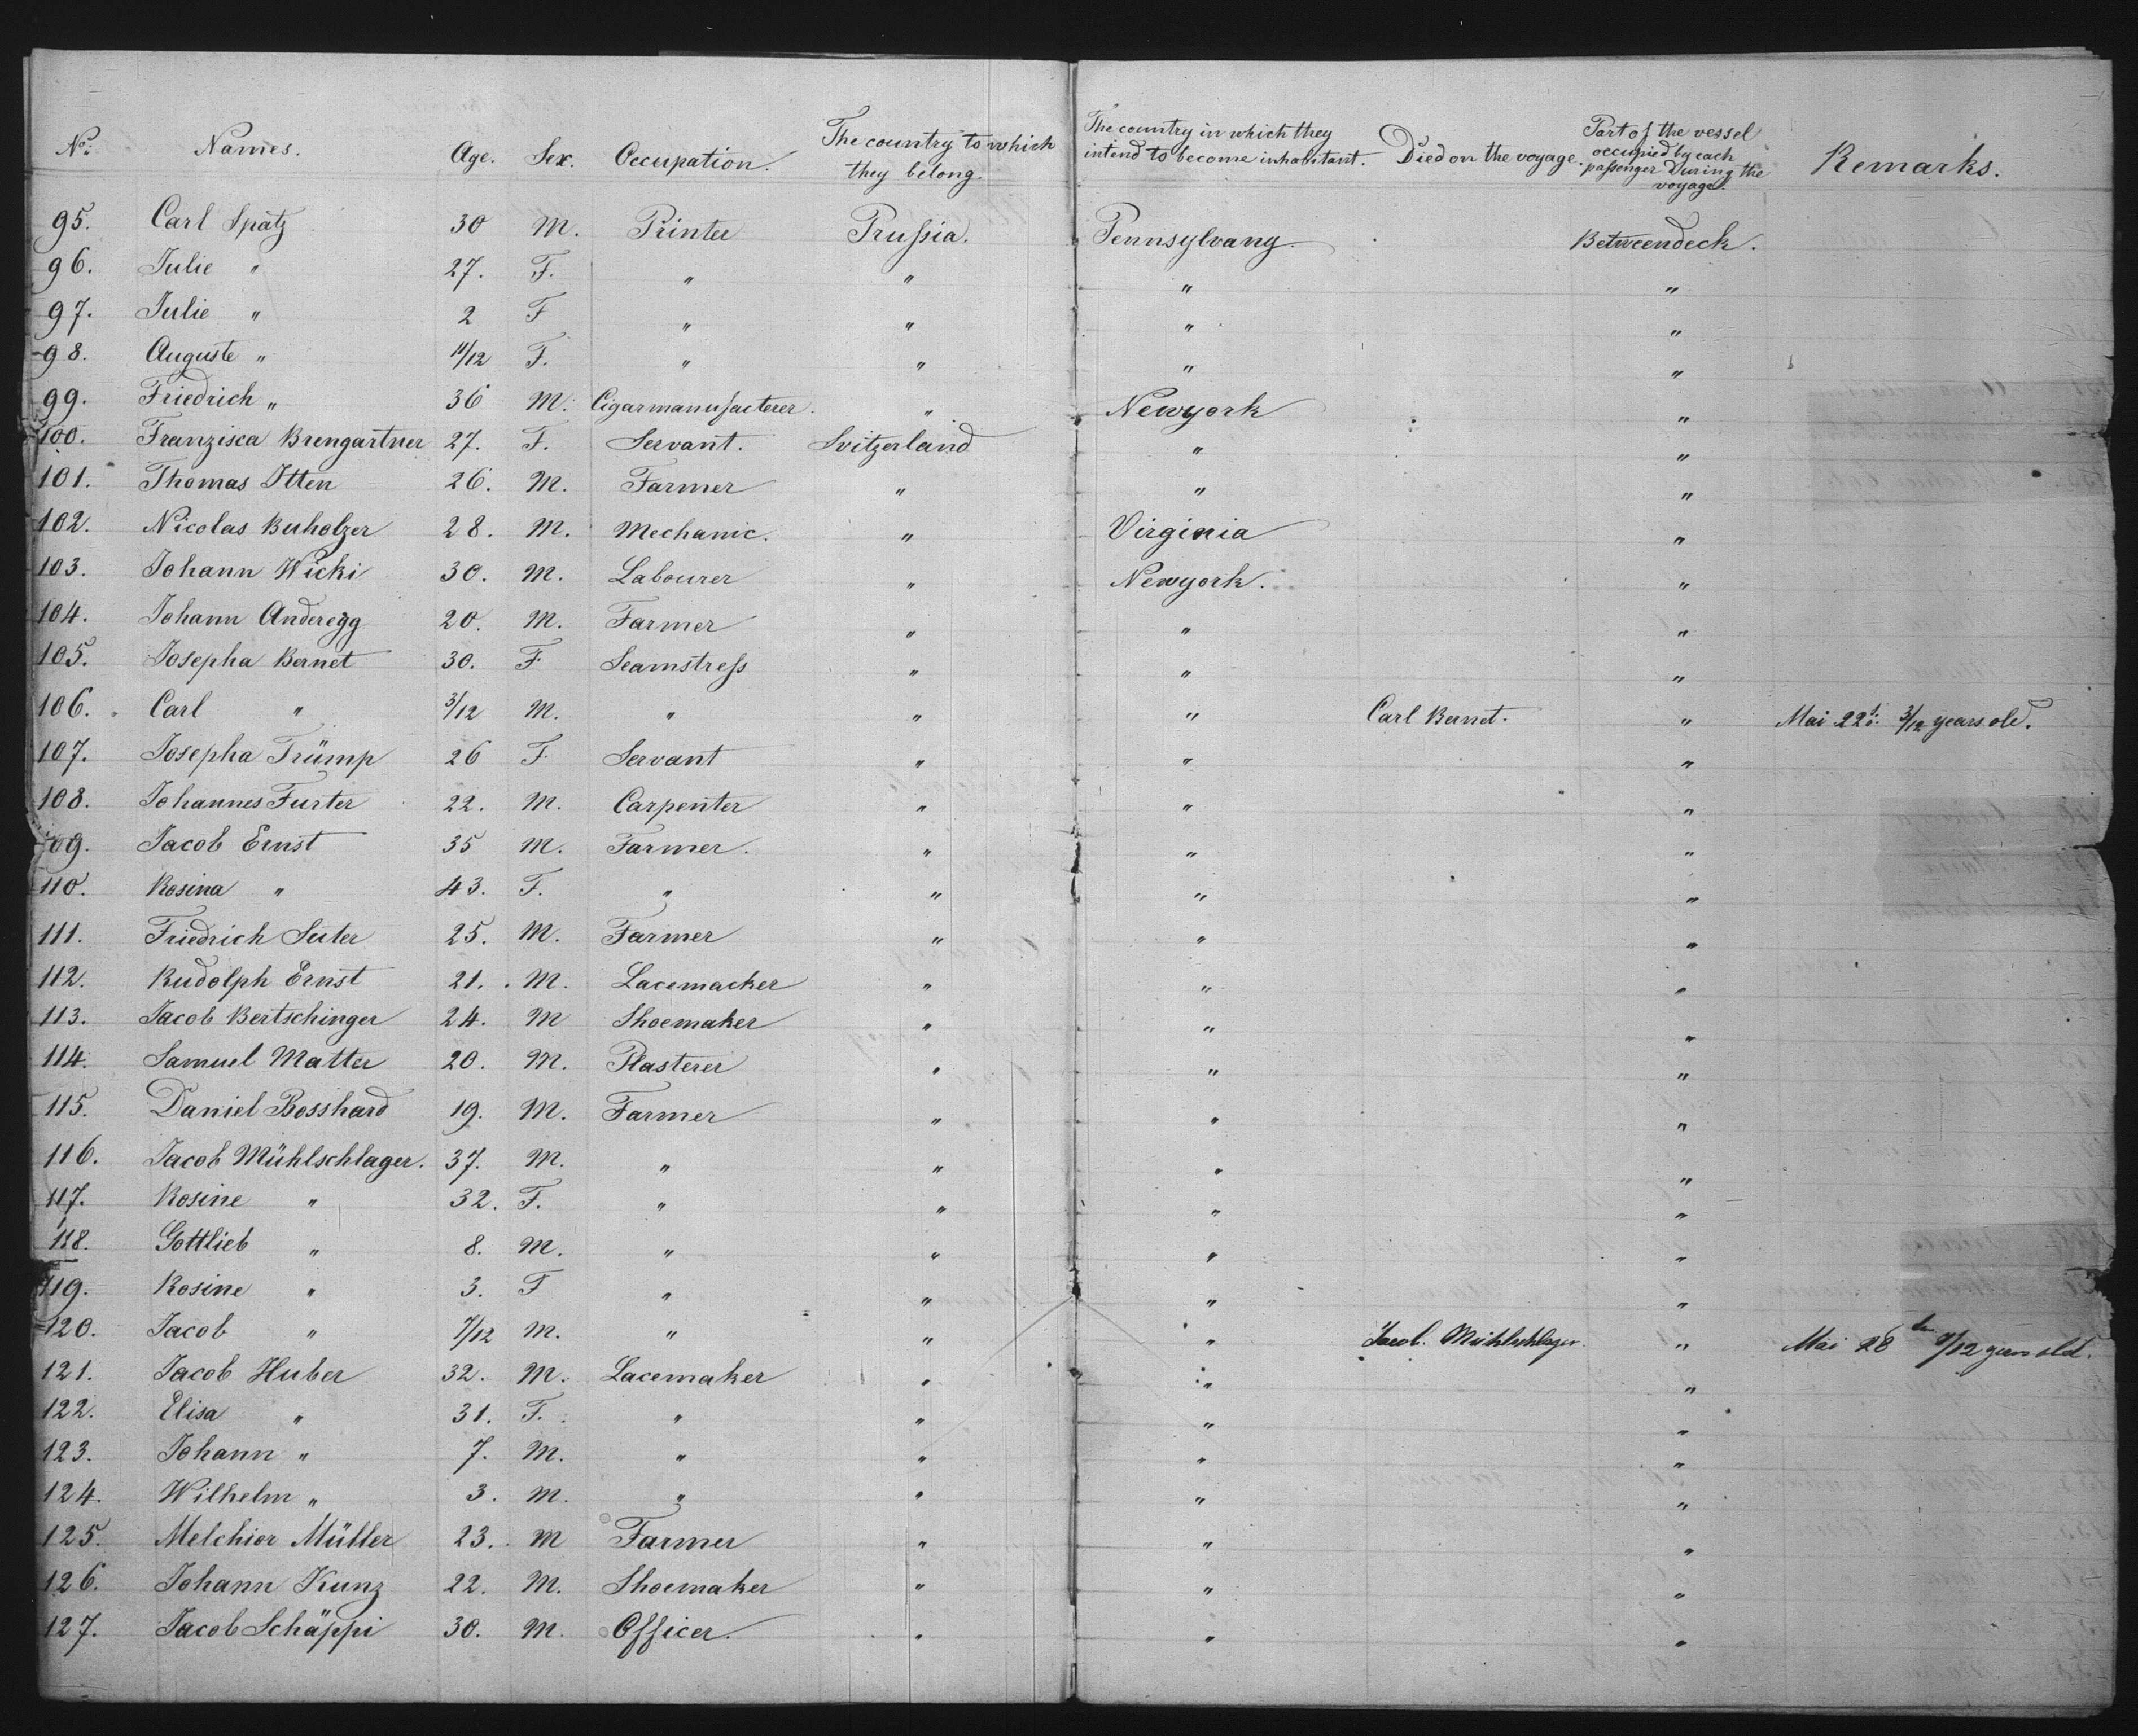 No. Names. Age. Sex. Occupation. The country to which they belong. The country in which they intend to become inhabitant. Died on the voyage. Part of the vessel occupied by each passenger During the voyage. Remarks.
95. Carl Spätz 30 M. Printer Prussia. Pennsylvany. Betweendeck.
96. Julie " 27. F. " " " "
97. Julie " 2 F " " " "
98. Auguste " 11/12 F. " " " "
99. Friedrich " 36 M. Cigarmanufacterer. " Newyork "
100. Franzisca Brengartner 27. F. Servant. Svitzerland " "
101. Thomas Itten 26. M. Farmer " " "
102. Nicolas Buholzer 28. M. Mechanic. " Virginia "
103. Johann Wicki 30. M. Labourer " Newyork. "
104. Johann Anderegg 20. M. Farmer " " "
105. Josepha Bernet 30. F Seamstress " " "
106. Carl " 3/12 M. " " " Carl Bernet. " Mai 22 3/12 years old.
107. Josepha Trümp 26 F. Servant " " "
108. Johannes Furter 22. M. Carpenter " " "
109. Jacob Ernst 35 M. Farmer. " " "
110. Rosina " 43. F. " " " "
111. Friedrich Suter 25. M. Farmer " " "
112. Rudolph Ernst 21. M. Lacemacker " " "
113. Jacob Bertschinger 24. M Shoemaker " " "
114. Samuel Matter 20. M. Plasterer " " "
115. Daniel Bosshard 19. M. Farmer " " "
116. Jacob Mühlschlager. 37. M. " " " "
117. Rosine " 32. F. " " " "
118. Gottlieb " 8. M. " " " "
119. Rosine " 3. F " " " "
120. Jacob " M. " " " Jacob. Mühlschlager. " Mai 28th old.
121. Jacob Huber 32. M. Lacemaker " " "
122. Elisa " 31. F. " " " "
123. Johann " 7. M. " " " "
124. Wilhelm " 3. M. " " " "
125. Melchior Müller 23. M Farmer " " "
126. Johann Kunz 22. M. Shoemaker " " "
127. Jacob Schäppi 30. M. Officer. " " "